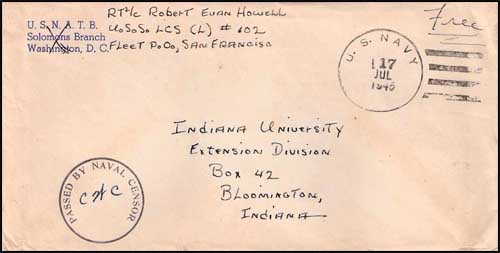 RT 1/c Robert Evan Howell
U.S.S. LCS (L) # 102
Fleet P.O., San Francisco
U. S. N. A. T. B.
Solomons Branch
Washington, D. C.
Free
U. S. NAVY
17
JUL
1945
Indiana University
Extension Division
Box 42
Bloomington,
Indiana
PASSED BY NAVAL CENSOR
CAC